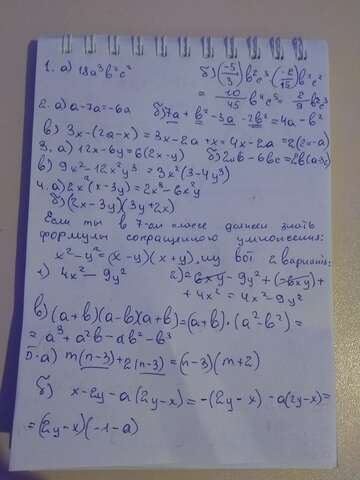 1. а) 18a³b²c²
б) (-5/3)b²c³·(-2/15)b²c²
= 10/45 b⁴c⁵ = 2/9 b⁴c⁵
2. а) a-7a=-6a
б) 7a + b² - 3a - 2b² = 4a - b²
в) 3x-(2a-x) = 3x-2a+x = 4x-2a = 2(2x-a)
3. а) 12x-6y=6(2x-y)
б) 2ab-6bc=2b(a-3c)
в) 9x²-12x²y³ = 3x²(3-4y³)
4. а) 2x²(x-3y) = 2x³-6x²y
б) (2x-3y)(3y+2x)
Если ты в 7-ом классе должен знать
формулы сокращённого умножения:
x²-y²=(x-y)(x+y), ну вот 2 варианта:
1) 4x²-9y²
2) = 6xy - 9y² + (-6xy) +
+ 4x² = 4x²-9y²
в) (a+b)(a-b)(a+b)=(a+b)·(a²-b²) =
= a³+a²b-ab²-b³
5. а) m(n-3)+2(n-3)=(n-3)(m+2)
б) x-2y-a(2y-x)=-(2y-x)-a(2y-x)=
=(2y-x)(-1-a)